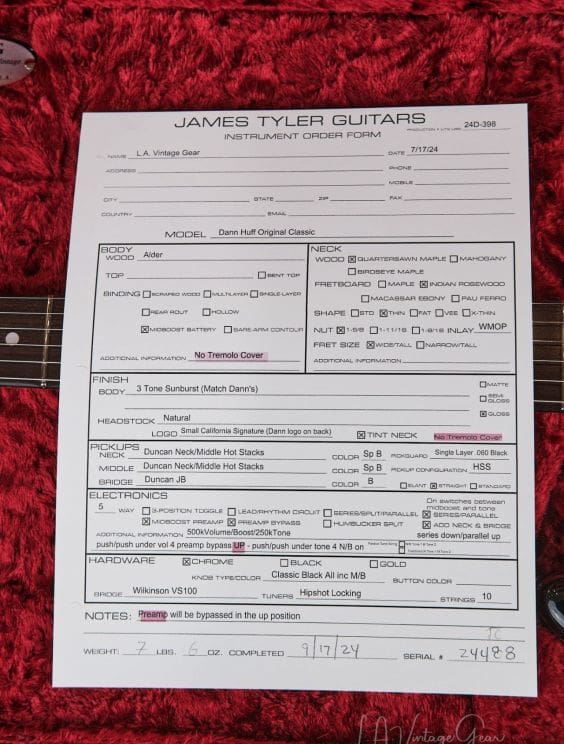 JAMES TYLER GUITARS
INSTRUMENT ORDER FORM
PRODUCTION # (JTG USE) 24D-398
NAME L.A. Vintage Gear DATE 7/17/24
ADDRESS PHONE
MOBILE
CITY STATE ZIP FAX
COUNTRY EMAIL
MODEL Dann Huff Original Classic
BODY
WOOD Alder
TOP BENT TOP
BINDING SCRAPED WOOD MULTILAYER SINGLE-LAYER
REAR ROUT HOLLOW
MIDBOOST BATTERY BARE-ARM CONTOUR
ADDITIONAL INFORMATION No Tremolo Cover
NECK
WOOD QUARTERSAWN MAPLE MAHOGANY
BIRDSEYE MAPLE
FRETBOARD MAPLE INDIAN ROSEWOOD
MACASSAR EBONY PAU FERRO
SHAPE STD THIN FAT VEE X-THIN
NUT 1-5/8 1-11/16 1-9/16 INLAY WMOP
FRET SIZE WIDE/TALL NARROW/TALL
ADDITIONAL INFORMATION
FINISH
BODY 3 Tone Sunburst (Match Dann's) MATTE
SEMI GLOSS
GLOSS
HEADSTOCK Natural
LOGO Small California Signature (Dann logo on back) TINT NECK No Tremolo Cover
PICKUPS
NECK Duncan Neck/Middle Hot Stacks COLOR Sp B PICKGUARD Single Layer .060 Black
MIDDLE Duncan Neck/Middle Hot Stacks COLOR Sp B PICKUP CONFIGURATION HSS
BRIDGE Duncan JB COLOR B SLANT STRAIGHT STANDARD
ELECTRONICS
On switches between
midboost and tone
5 WAY 3-POSITION TOGGLE LEAD/RHYTHM CIRCUIT SERIES/SPLIT/PARALLEL SERIES/PARALLEL
MIDBOOST PREAMP PREAMP BYPASS HUMBUCKER SPLIT ADD NECK & BRIDGE
ADDITIONAL INFORMATION 500kVolume/Boost/250kTone series down/parallel up
push/push under vol 4 preamp bypass UP - push/push under tone 4 N/B on
HARDWARE CHROME BLACK GOLD
KNOB TYPE/COLOR Classic Black All inc M/B BUTTON COLOR
BRIDGE Wilkinson VS100 TUNERS Hipshot Locking STRINGS 10
NOTES: Preamp will be bypassed in the up position
WEIGHT: 7 LBS. 6 OZ. COMPLETED 9/17/24 SERIAL # 24488
L.A. Vintage Gear